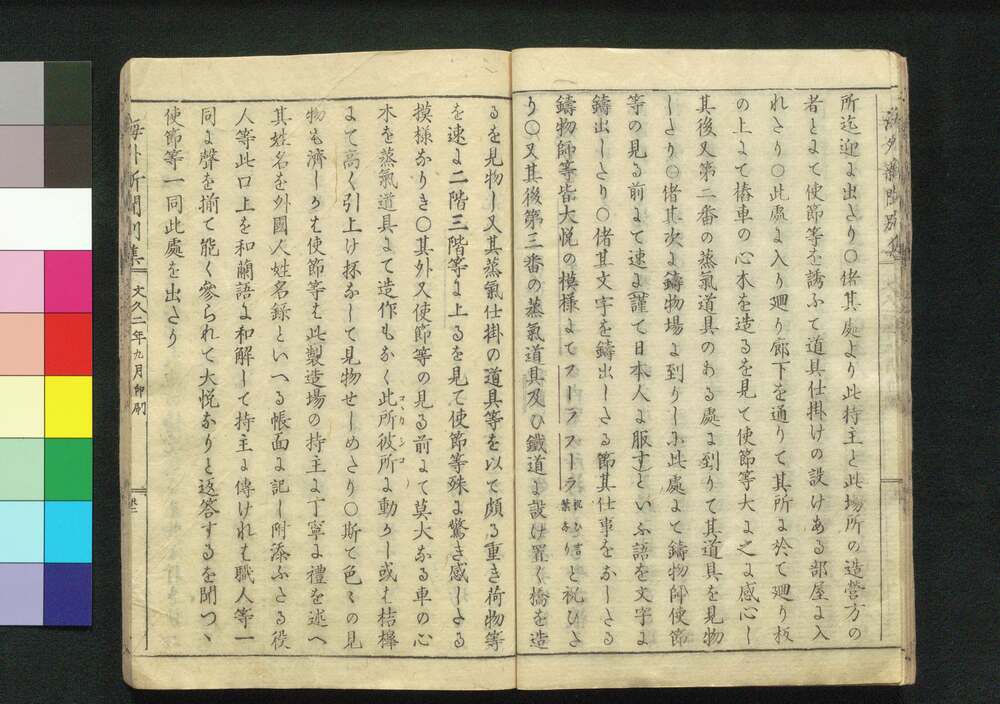 海外新聞別集
所迄迎よ出より〇偖其處より此持主と此場所の造營方の
者とよて使節等を誘ふて道具仕掛けの設けある部屋よ入
れより〇此處よ入り廻り廊下を通りて其所よ於て廻り板
の上よて椿車の心木を造るを見て使節等大よ之よ感心し
其後又第二番の蒸氣道具のある處よ到りて其道具を見物
しより〇偖其次よ鑄物場よ到りし小此處よて鑄物師使節
等の見る前よて速よ謹て日本人よ服すといふ語を文字よ
鑄出しより〇偖其文字を鑄出しさる節其仕事をなしさる
鑄物師等皆大悦の模様よてフーラフーラ祝ひ言葉なりと祝ひさ
り〇又其後第三番の蒸氣道具及ひ鐵道よ設け置く橋を造
るを見物し又其蒸氣仕掛の道具等を以て頗る重き荷物等
を速よ二階三階等よ上るを見て使節等殊よ驚き感しさる
摸様なりき〇其外又使節等の見る前よて莫大なる車の心
木を蒸氣道具よて造作もなく此所彼所よ動かし或は桔槹
よて高く引上け抔なして見物せしめさり〇斯て色々の見
物も濟しかは使節等は此製造場の持主よ丁寧よ禮を述へ
其姓名を外國人姓名録といへる帳面よ記し附添ふさる役
人等此口上を和蘭語よ和解して持主よ傳けれは職人等一
同よ聲を揃て能く參られて大悦なりと返答するを聞つゝ
使節等一同此處を出さり
海外新聞別集
文久二年九月印刷